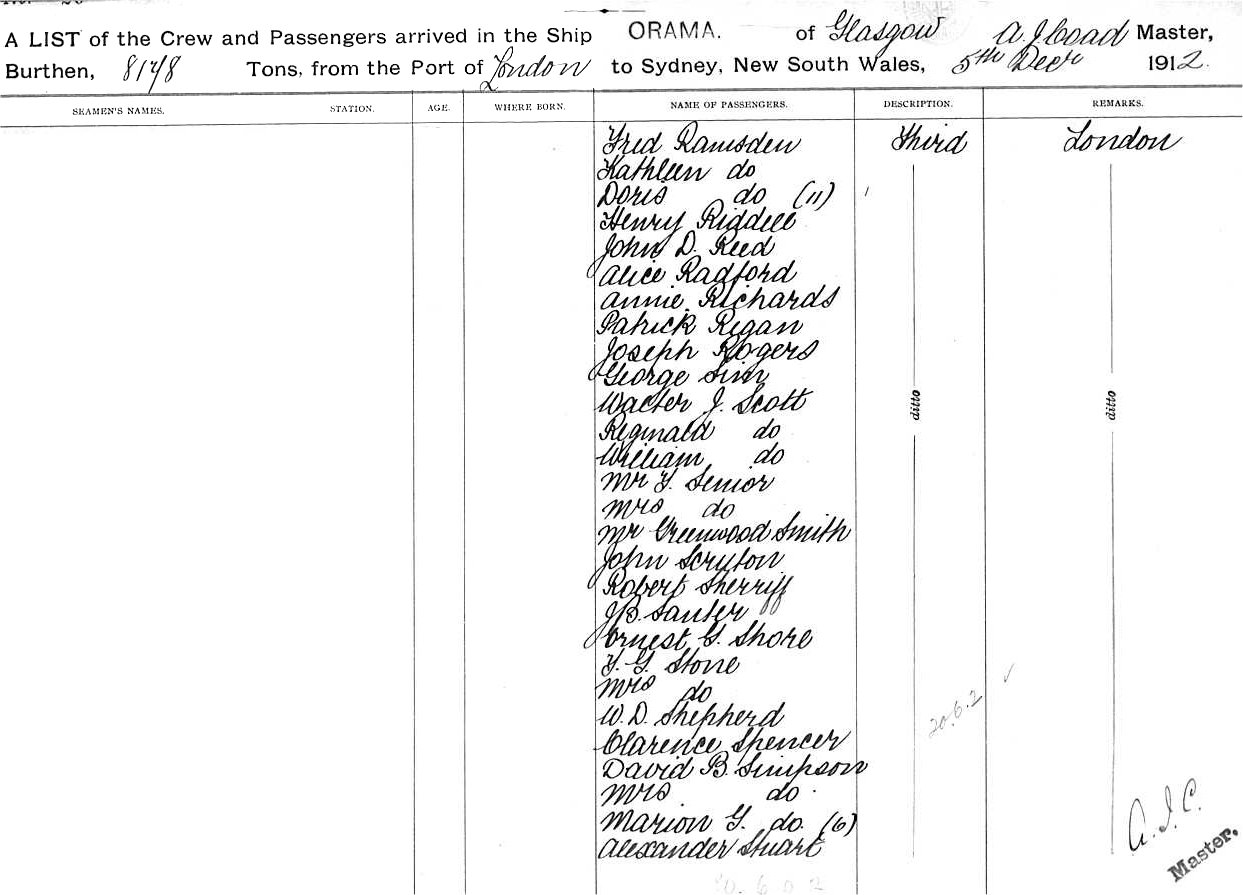 A LIST of the Crew and Passengers arrived in the Ship ORAMA. of Glasgow A. J. Coad Master,
Burthen, 8178 Tons, from the Port of London to Sydney, New South Wales, 5th Decr 1912.
SEAMEN'S NAMES. STATION. AGE. WHERE BORN. NAME OF PASSENGERS. DESCRIPTION. REMARKS.
Fred Ramsden Third London
Kathleen do
Doris do (11)
Henry Riddell
John D. Reed
Alice Radford
Annie Richards
Patrick Regan
Joseph Rogers
George Sim
Walter J. Scott ditto ditto
Reginald do
William do
Mr F. Senior
Mrs do
Mr Greenwood Smith
John Scruton
Robert Sherriff
J B. Santer
Ernest G. Shore
F. G. Stone
Mrs do
W. D. Shepherd 20.6.2
Clarence Spencer
David B. Simpson
Mrs do
Marion G. do. (6) A. J. C.
Alexander Stuart Master.